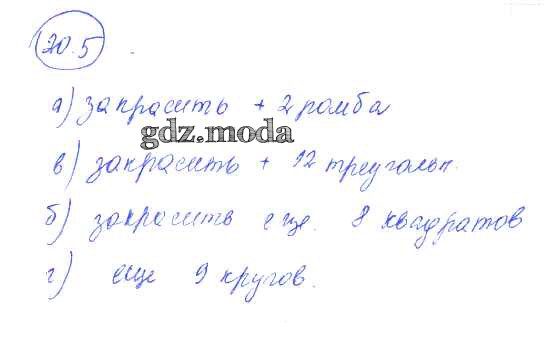 20.5
а) закрасить + 2 ромба
gdz.moda
в) закрасить + 12 треугольн.
б) закрасить еще 8 квадратов
г) еще 9 кругов.